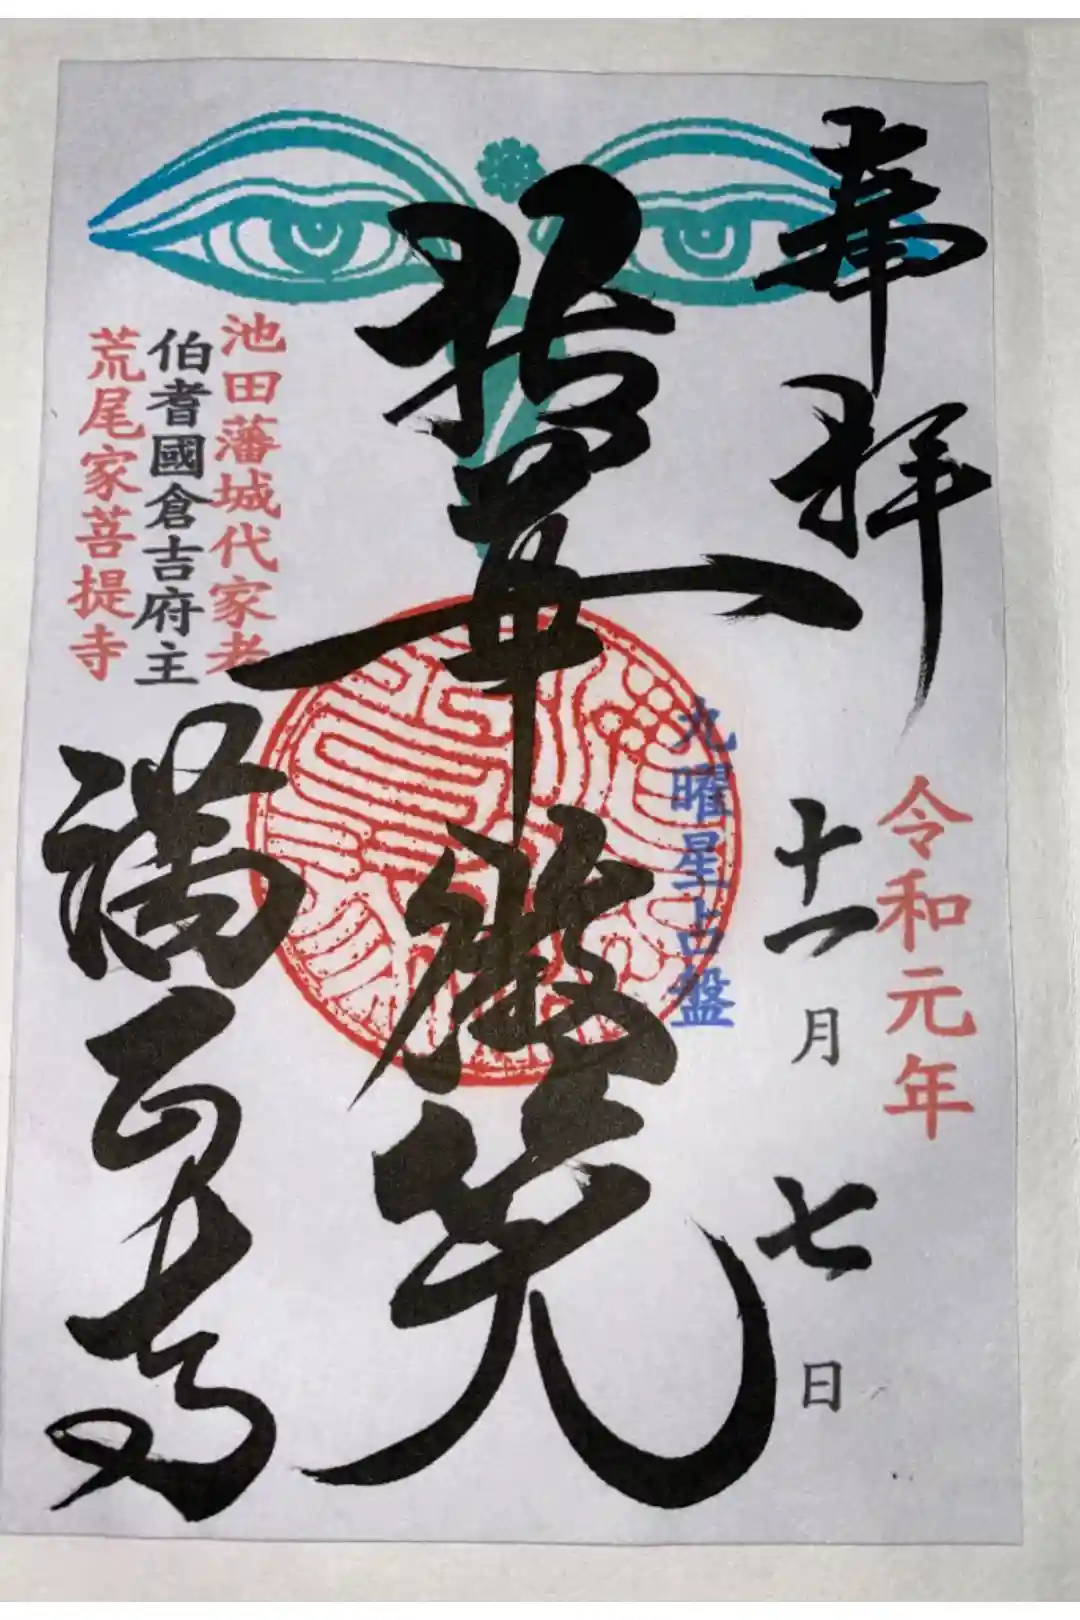 奉拝
令和元年
十一月七日
拈華微笑
九曜星占盤
池田藩城代家老
伯耆國倉吉府主
荒尾家菩提寺
満正寺